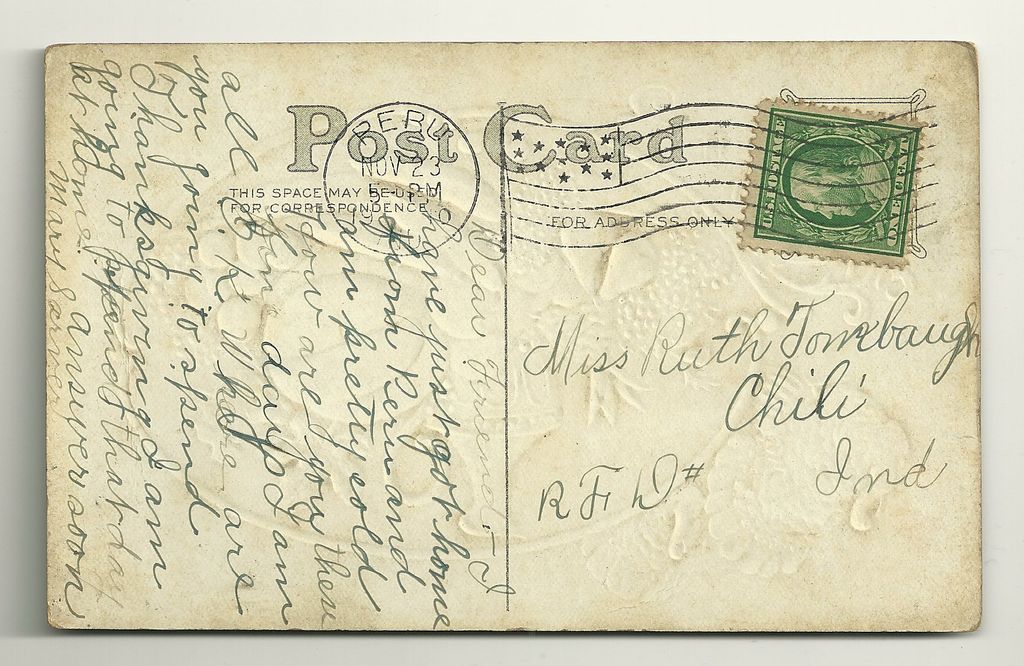 Post Card
PERU
NOV 23
5-PM
THIS SPACE MAY BE USED
FOR CORRESPONDENCE
FOR ADDRESS ONLY
U.S. POSTAGE
ONE CENT
Dear Friend:- I
have just got home
from Peru and
am pretty cold
How are you these
fine days I am
O.K. Where are
all
you going to spend
Thanksgiving I am
going to spend that day
at home. answer soon
Miss Ruth Tombaugh
Chili
Ind
R F D #